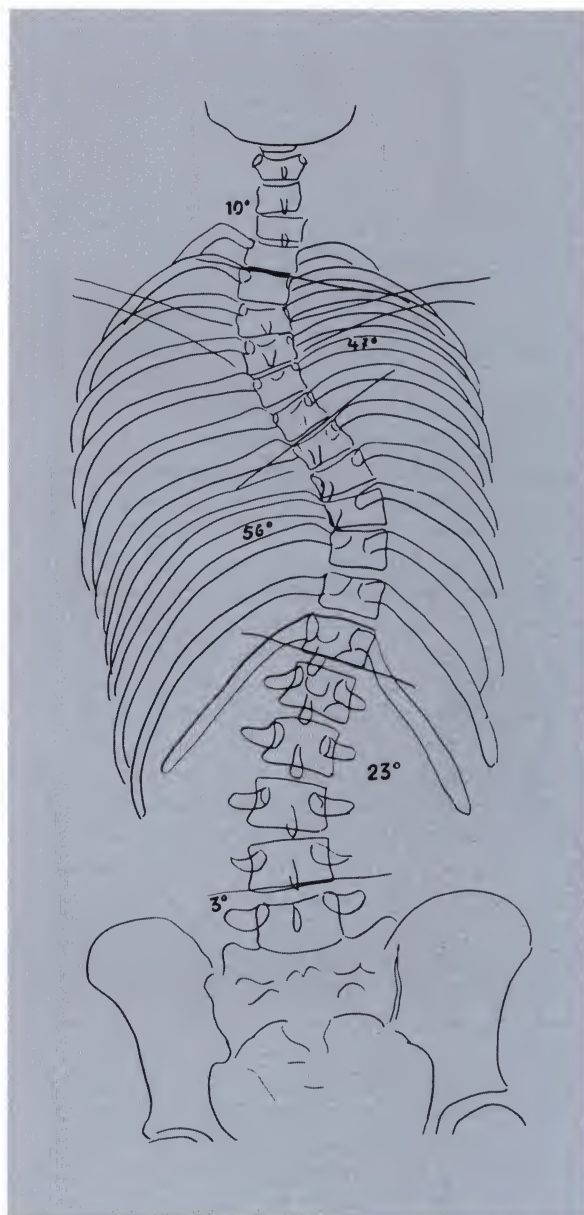 10°
47°
56°
23°
3°